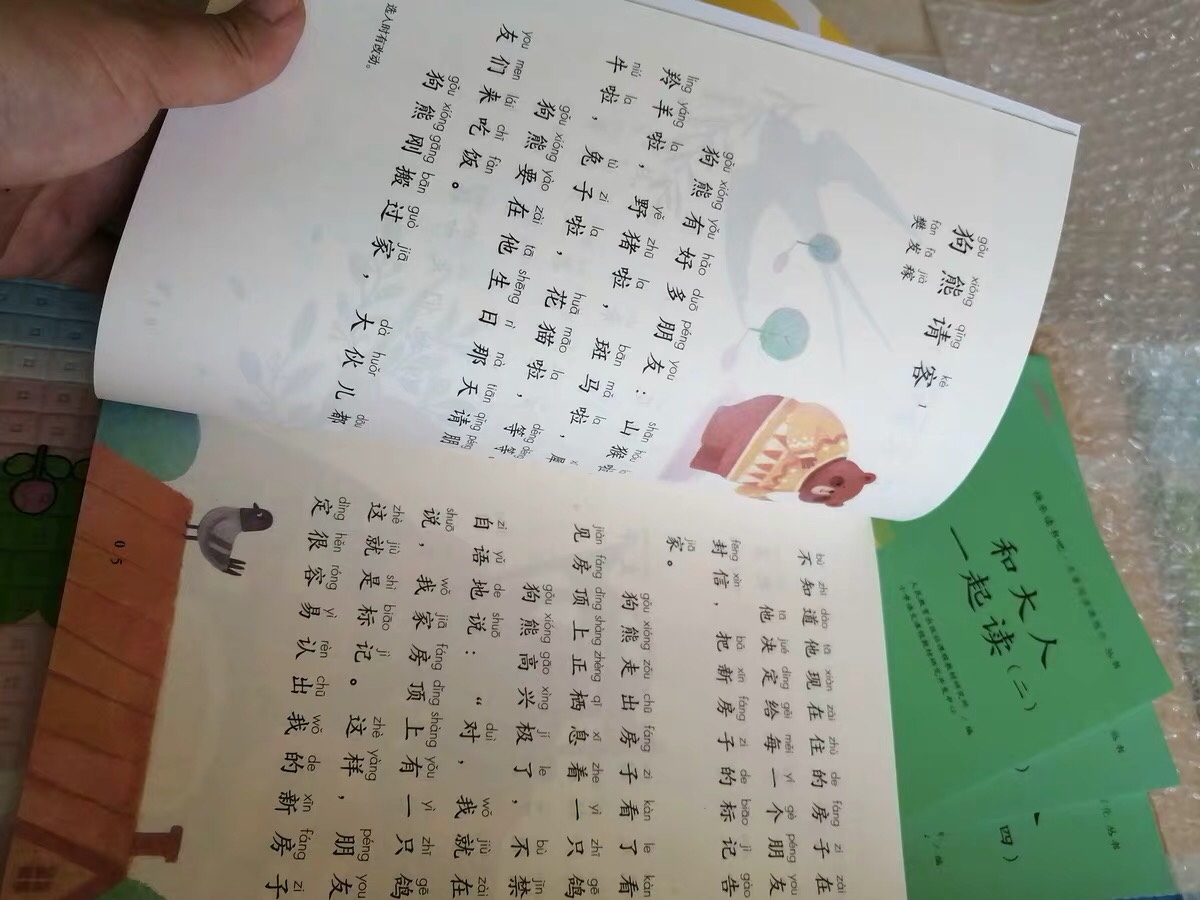 gǒu xióng qǐng kè
狗熊请客¹
fán fā jià
樊发稼
gǒu xióng yǒu hǎo duō péng you shān hóu
狗熊有好多朋友：山猴啦
líng yáng la yě zhū la bān mǎ la
羚羊啦，野猪啦，斑马啦，犀
niú la tù zi la huā māo la děng děng
牛啦，兔子啦，花猫啦，等等，
gǒu xióng yào zài tā shēng rì nà tiān qǐng péng
狗熊要在他生日那天请朋
you men lái chī fàn
友们来吃饭。
gǒu xióng gāng bān guò jiā dà huǒr dōu
狗熊刚搬过家，大伙儿都
选入时有改动。
bù zhī dào tā xiàn zài zhù de fáng zi zài
不知道他现在住的房子在
tā jué dìng gěi měi yí gè péng you
他决定给每一个朋友
fēng xìn bǎ xīn fáng zi de biāo jì gào
封信，把新房子的标记告
jiā
家。
gǒu xióng zǒu chū fáng zi kàn le kàn
狗熊走出房子看了看
jiàn fáng dǐng shàng zhèng qī xī zhe yì zhī gē
见房顶上正栖息着一只鸽
gǒu xióng gāo xìng jí le bù jīn
狗熊高兴极了，不禁
zì yǔ de shuō duì wǒ jiù zài
自语地说：“对，我就在
shuō wǒ jiā fáng dǐng shàng yǒu yì zhī gē
说，我家房顶上有一只鸽
zhè jiù shì biāo jì zhè yàng péng you
这就是标记。这样，朋友
dìng hěn róng yì rèn chū wǒ de xīn fáng zi
定很容易认出我的新房子
05
快乐读书吧·名著阅读课程化丛书
和大人
一起读（二）
人民教育出版社课程教材研究所 / 编
小学语文课程教材研究开发中心
丛书
四）
化丛书
编